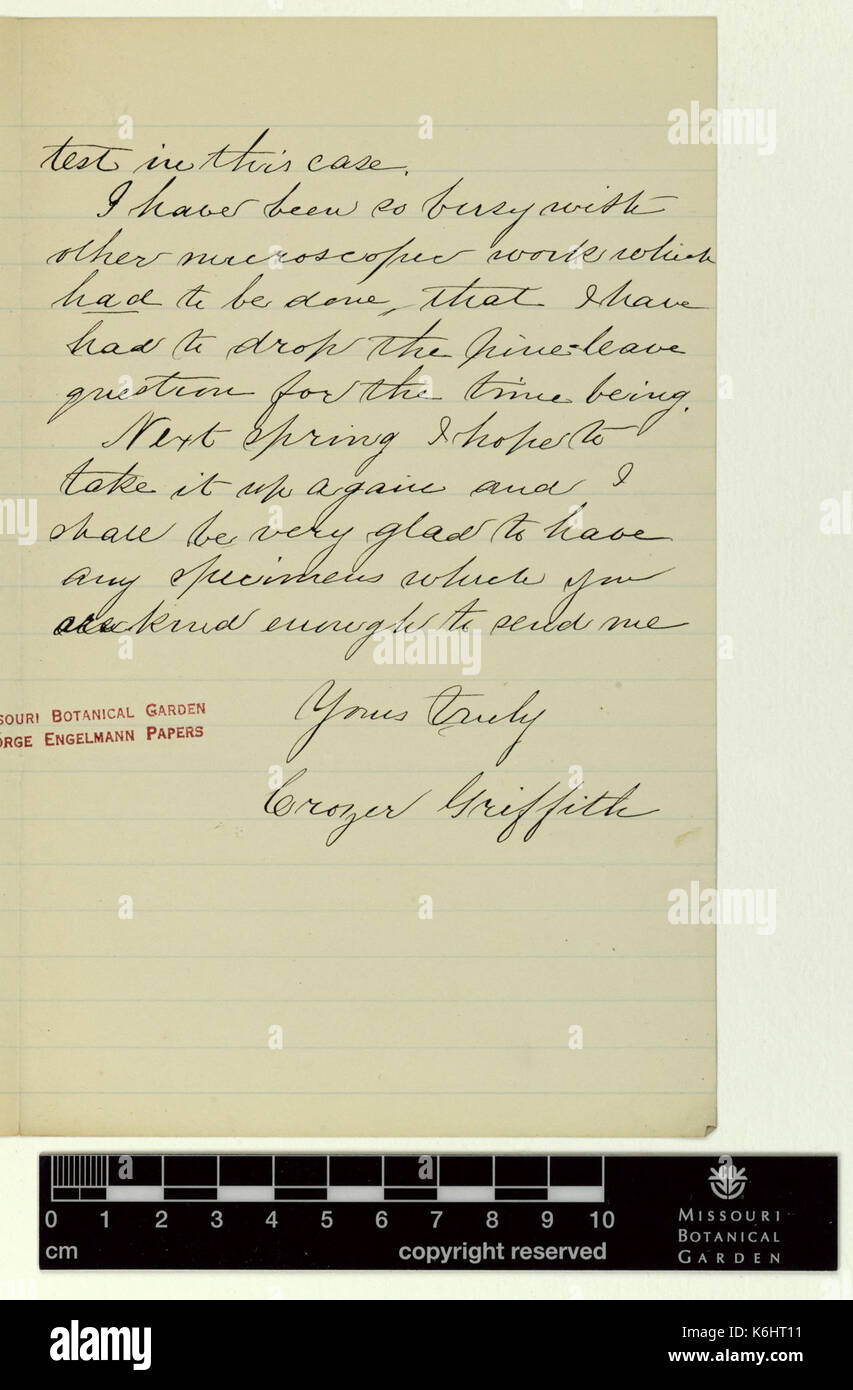 test in this case.
I have been so busy with
other microscopic work which
had to be done, that I have
had to drop the pine-leave
question for the time being.
Next spring I hope to
take it up again and I
shall be very glad to have
any specimens which you
are kind enough to send me
Yours truly
Crozer Griffith
SOURI BOTANICAL GARDEN
ORGE ENGELMANN PAPERS
0 1 2 3 4 5 6 7 8 9 10
cm
copyright reserved
MISSOURI
BOTANICAL
GARDEN
alamy
alamy
alamy
a
alamy
Image ID: K6HT11
www.alamy.com